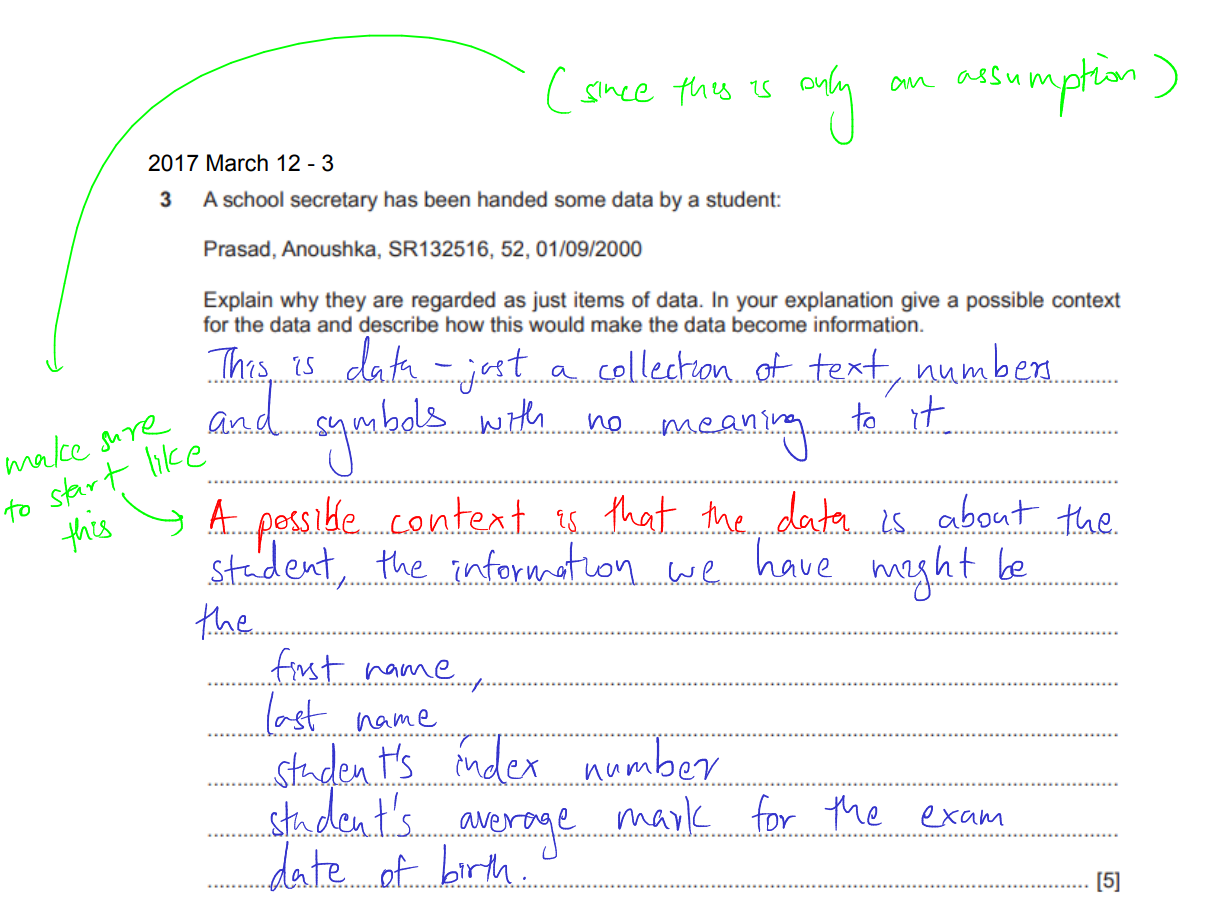 (since this is only an assumption)
2017 March 12 - 3
3 A school secretary has been handed some data by a student:
Prasad, Anoushka, SR132516, 52, 01/09/2000
Explain why they are regarded as just items of data. In your explanation give a possible context
for the data and describe how this would make the data become information.
This is data - just a collection of text, numbers
and symbols with no meaning to it.
make sure
to start like
this
A possible context is that the data is about the
student, the information we have might be
the
first name,
last name
student's index number
student's average mark for the exam
date of birth.
[5]